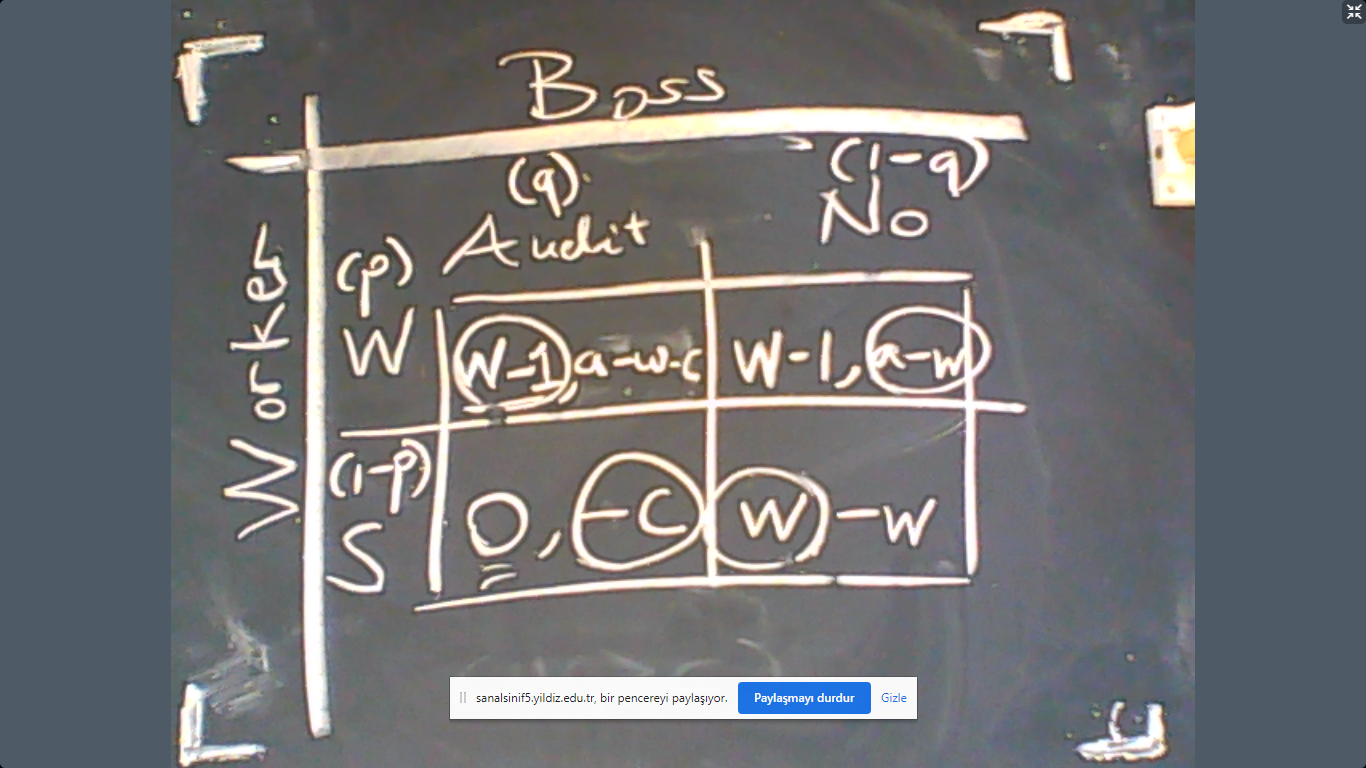 Boss
(q) (1-q)
Audit No
Worker
(p)
W
W-1, a-w-c W-1, a-w
(1-p)
S
0, -c W, -w
sanalsinif5.yildiz.edu.tr, bir pencereyi paylaşıyor. Paylaşmayı durdur Gizle